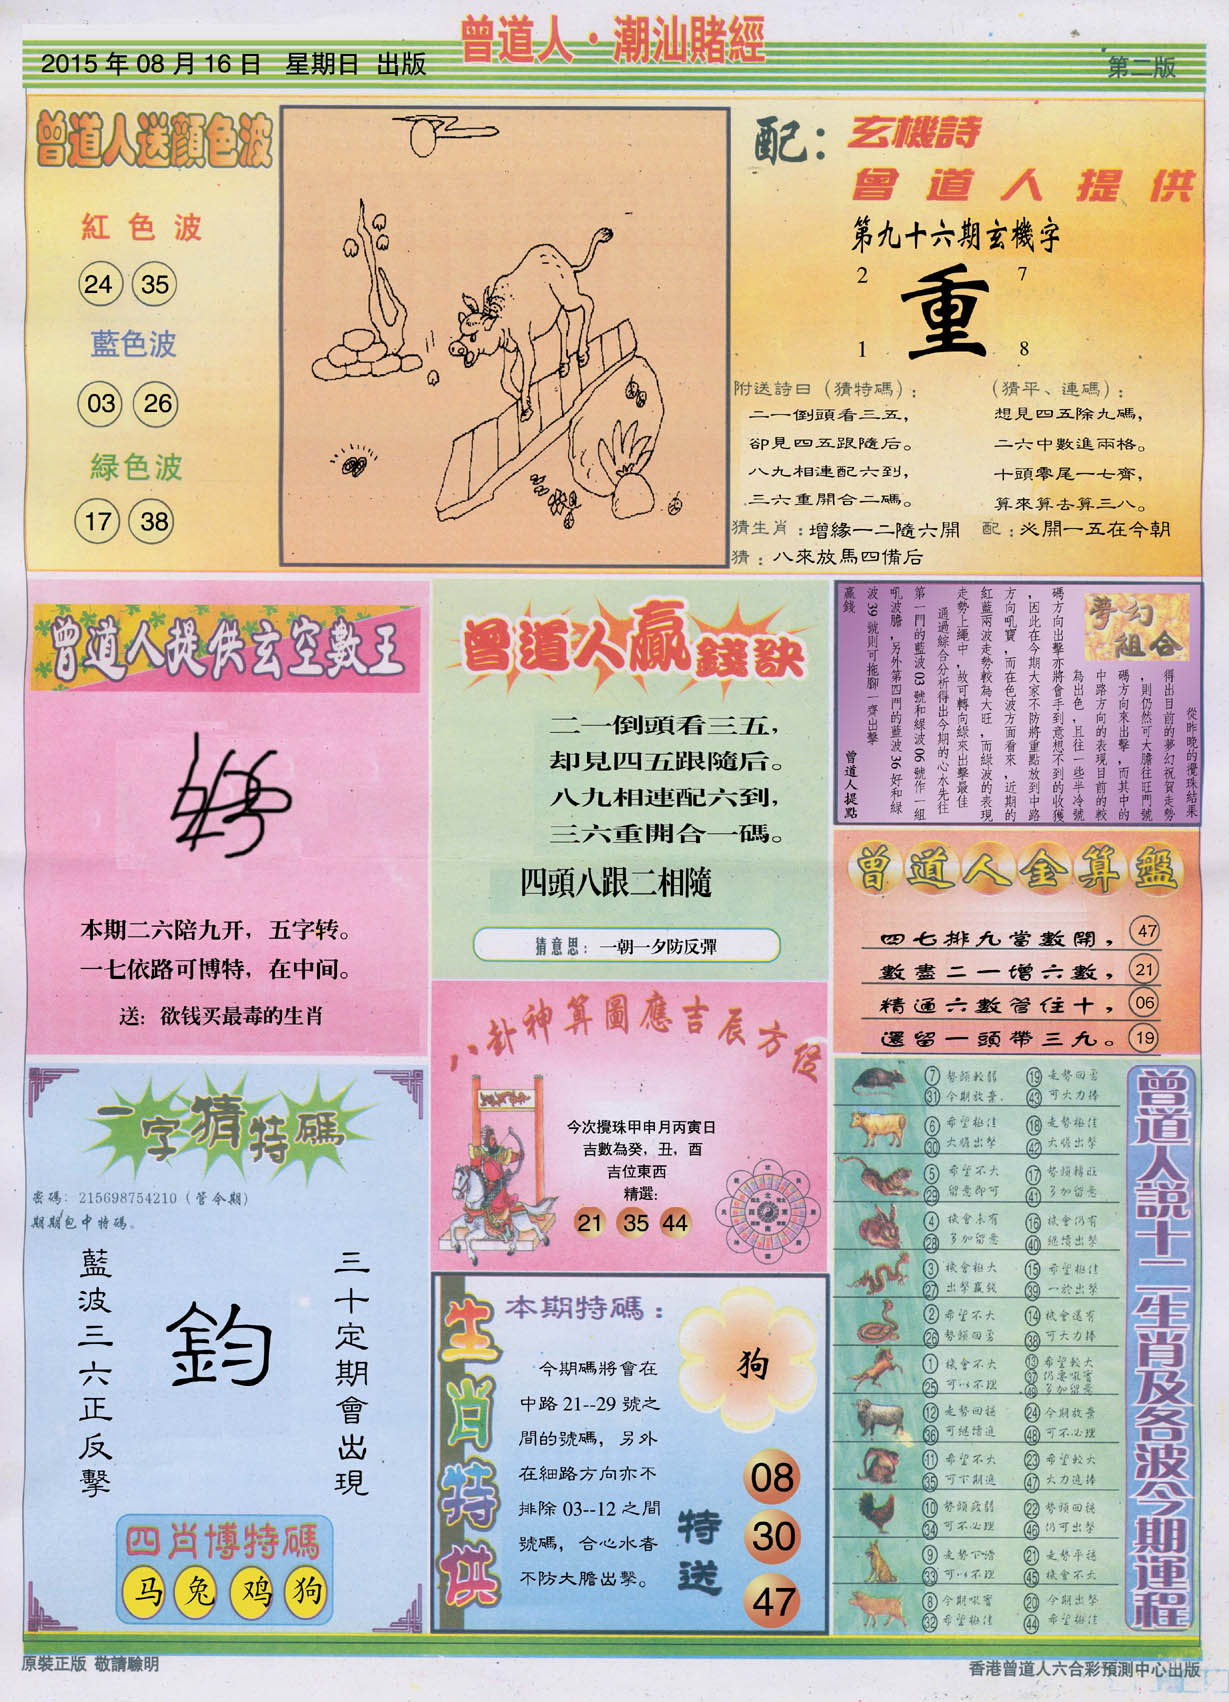 曾道人·潮汕賭經
2015年08月16日 星期日 出版
第二版
曾道人送顏色波
紅色波
24 35
藍色波
03 26
緑色波
17 38
配：玄機詩
曾道人提供
第九十六期玄機字
2 7
重
1 8
附送詩曰（猜特碼）：
二一倒頭看三五，
卻見四五跟隨后。
八九相連配六到，
三六重開合二碼。
（猜平、連碼）：
想見四五除九碼，
二六中數進兩格。
十頭零尾一七齊，
算來算去算三八。
猜生肖：增緣一二隨六開
配：必開一五在今朝
猜：八來放馬四備后
曾道人提供玄空數王
本期二六陪九开，五字转。
一七依路可博特，在中间。
送：欲钱买最毒的生肖
曾道人贏錢訣
二一倒頭看三五，
却見四五跟隨后。
八九相連配六到，
三六重開合一碼。
四頭八跟二相隨
猜意思：一朝一夕防反彈
夢幻
組合
從昨晚的攪珠結果
得出目前的夢幻祝賀走勢
，則仍然可大膽往旺門號
碼方向來出擊，而其中的
中路方向的表現目前的較
為出色，且往一些半冷號
碼方向出擊亦將會手到意想不到的收獲
，因此在今期大家不防將重點放到中路
方向吼寶，而在色波方面看來，近期的
紅藍兩波走勢較為大旺，而綠波的表現
走勢上繩中，故可轉向綠來出擊最佳
通過綜合分析得出今期的心水先往
第一門的藍波03號和綠波06號作一組
吼波膽，另外第四門的藍波36好和綠
波39號則可拖腳一齊出擊
贏錢
曾道人提點
曾道人金算盤
四七排九當數開， 47
數盡二一增六數， 21
精通六數管住十， 06
還留一頭帶三九。 19
一字猜特碼
密碼：215698754210（管今期）
期期包中特碼。
三十定期會出現
鈞
藍波三六正反擊
四肖博特碼
马 兔 鸡 狗
八卦神算圖應吉辰方位
今次攪珠甲申月丙寅日
吉數為癸，丑，酉
吉位東西
精選：
21 35 44
生肖特供
本期特碼：
狗
今期碼將會在
中路21--29號之
間的號碼，另外
在細路方向亦不
排除03--12之間
號碼，合心水者
不防大膽出擊。
特送
08
30
47
曾道人説十二生肖及各波今期運程
7 勢頭較弱 19 走勢回勇
31 今期放棄 43 可大力捧
6 希望極佳 18 走勢極佳
30 大膽出擊 42 大膽出擊
5 希望不大 17 勢頭轉旺
29 留意即可 41 多加留意
4 機會未有 16 機會仍有
28 多加留意 40 繼續出擊
3 機會極大 15 希望極佳
27 出擊贏錢 39 一於出擊
2 希望不大 14 機會還有
26 勢頭回勇 38 可大力捧
1 機會不大 13 希望較大
25 可以不理 37 仍要吸實
49 多加留意
12 走勢回穩 24 今期放棄
36 可繼續追 48 可不必理
11 希望不大 23 希望較大
35 可下期追 47 大力追捧
10 勢頭疲弱 22 勢頭回穩
34 可不必理 46 仍可出擊
9 走勢下滑 21 走勢平穩
33 可以不理 45 機會不大
8 今期吸實 20 今期出擊
32 希望極佳 44 希望極佳
原裝正版 敬請驗明
香港曾道人六合彩預測中心出版